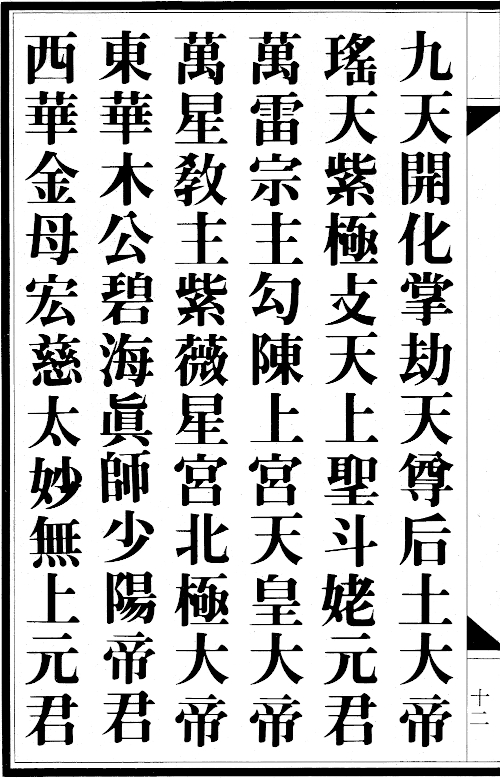 九天開化掌劫天尊后土大帝
瑤天紫極攴天上聖斗姥元君
萬雷宗主勾陳上宮天皇大帝
萬星教主紫薇星宮北極大帝
東華木公碧海眞師少陽帝君
西華金母宏慈太妙無上元君
十二